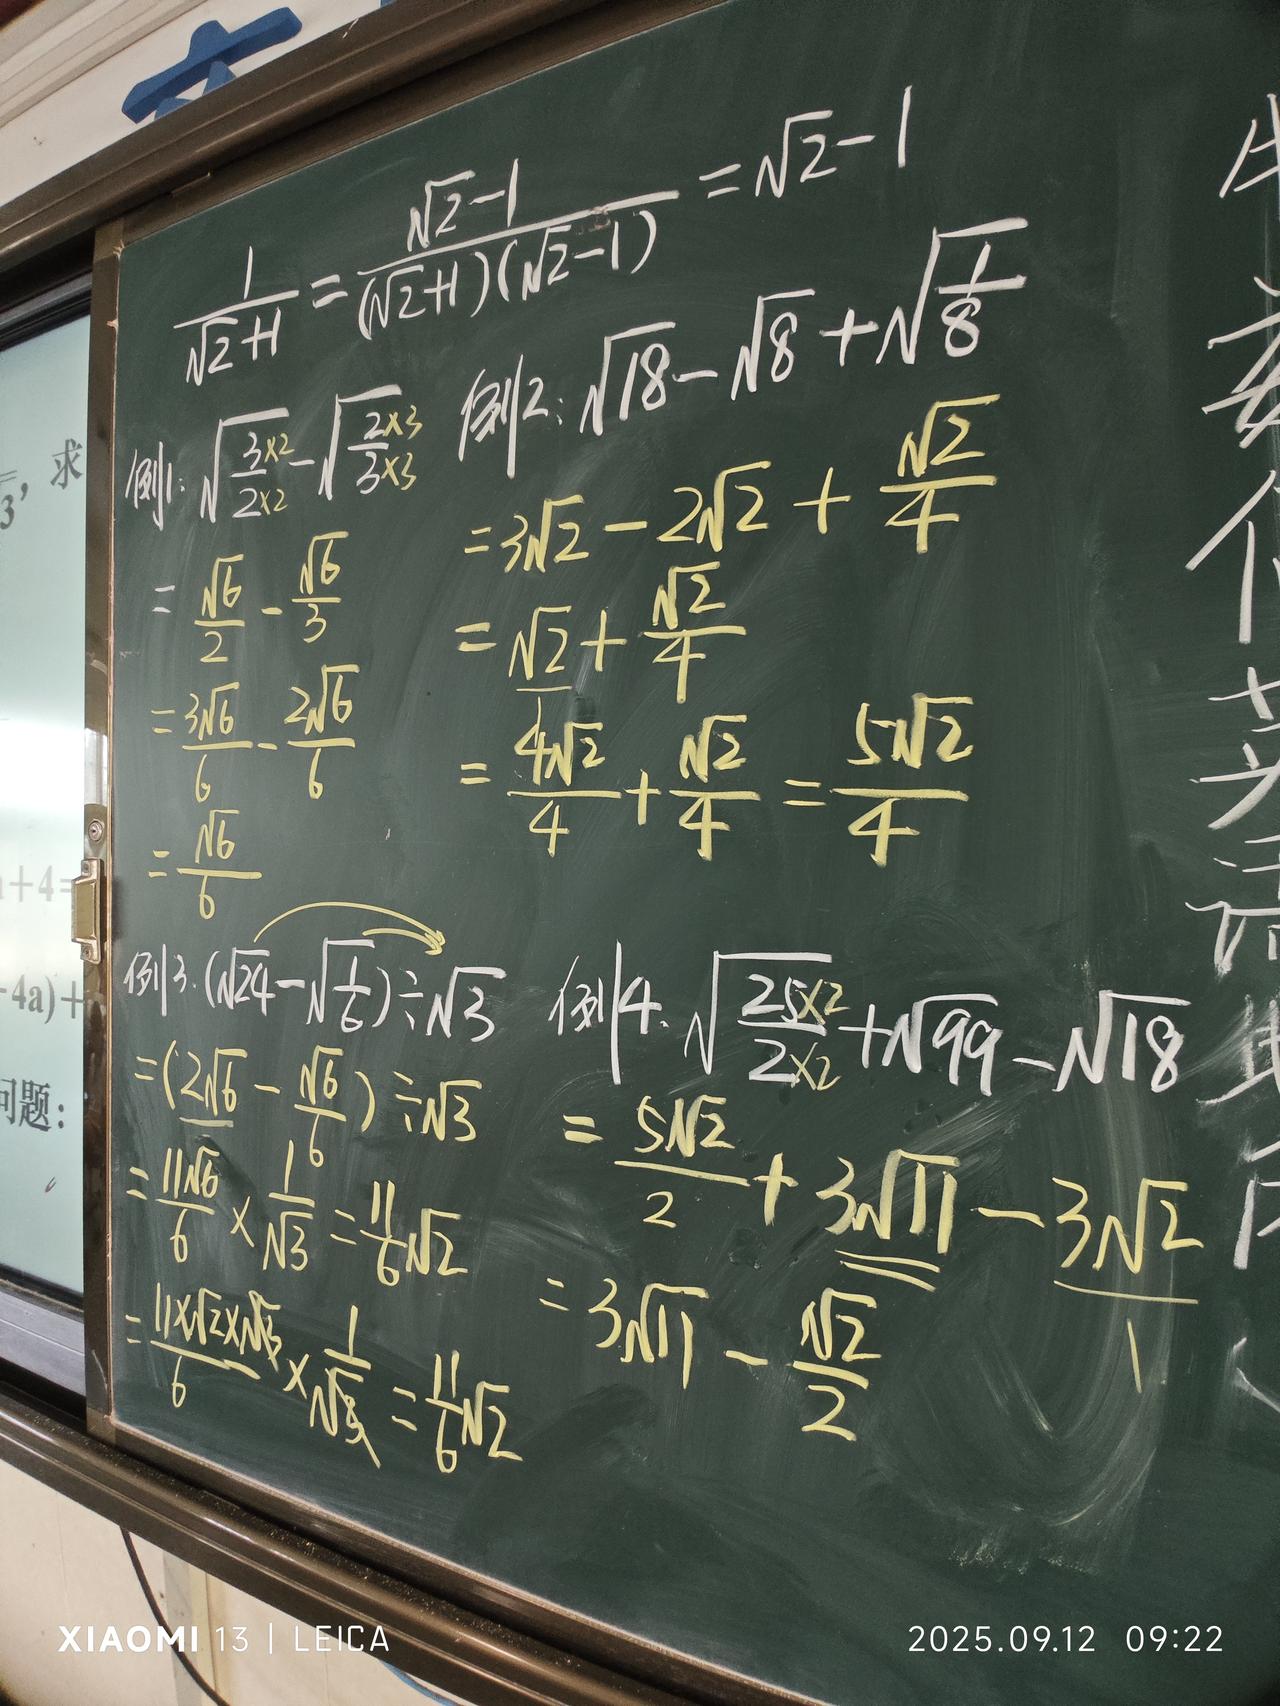 1/(√2+1) = (√2-1)/((√2+1)(√2-1)) = √2-1
例1: √(3×2/2×2) - √(2×3/3×3)
= √6/2 - √6/3
= 3√6/6 - 2√6/6
= √6/6
例2: √18 - √8 + √(1/8)
= 3√2 - 2√2 + √2/4
= √2/1 + √2/4
= 4√2/4 + √2/4 = 5√2/4
例3. (√24 - √(1/6)) ÷ √3
= (2√6 - √6/6) ÷ √3
= 11√6/6 × 1/√3 = 11/6 √2
= 11×√2×√3/6 × 1/√3 = 11/6 √2
例4. √(25×2/2×2) + √99 - √18
= 5√2/2 + 3√11 - 3√2/1
= 3√11 - √2/2
3, 求
+4=
-4a)+
问题:
XIAOMI 13 | LEICA
2025.09.12 09:22